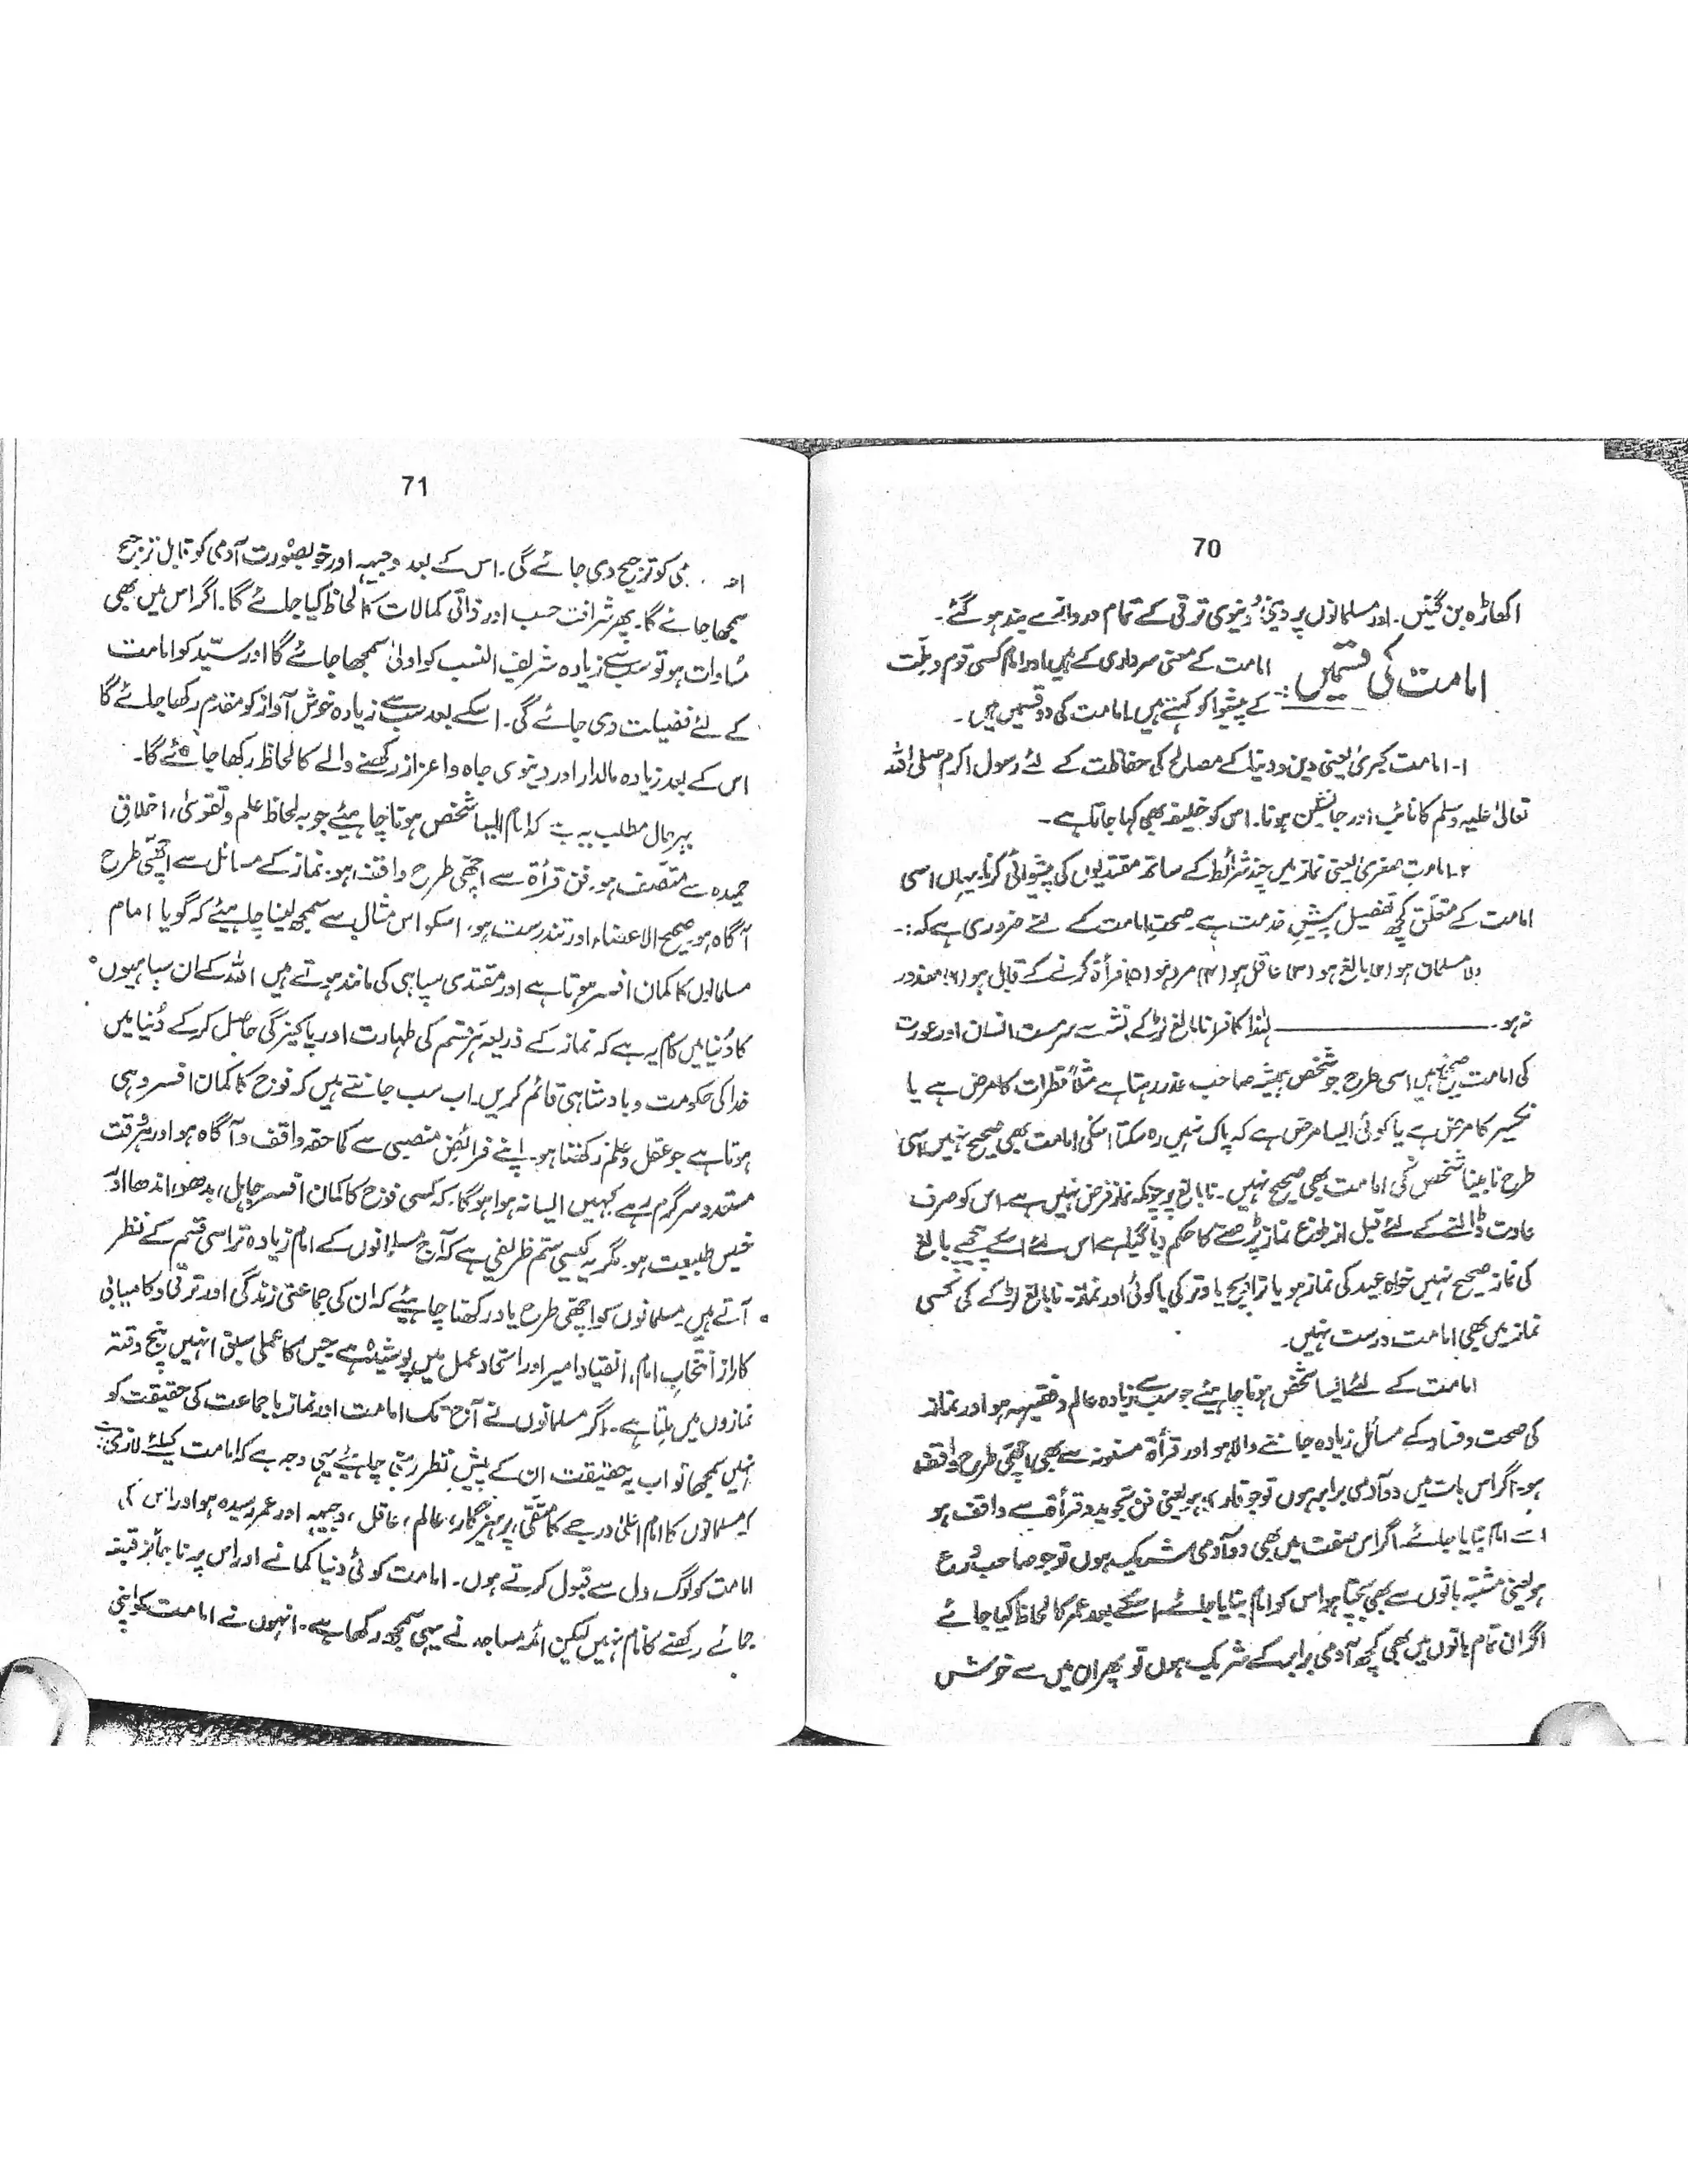 70
اکھاڑہ بن گئیں۔ اور مسلمانوں پر دینی، دُنیوی ترقی کے تمام دروازے بند ہو گئے۔
امامت کی قسمیں :- امامت کے معنی سرداری کے ہیں اور امام کسی قوم و ملّت
کے پیشوا کو کہتے ہیں۔ امامت کی دو قسمیں ہیں۔
۱- امامت کبریٰ یعنی دین و دنیا کے مصالح کی حفاظت کے لئے رسول اکرم صلی اللہ
تعالیٰ علیہ وسلم کا نائب اور جانشین ہونا۔ اس کو خلیفہ بھی کہا جاتا ہے۔
۲- امامتِ صغریٰ یعنی نماز میں چند شرائط کے ساتھ مقتدیوں کی پیشوائی کرنا۔ یہاں اسی
امامت کے متعلّق کچھ تفصیل پیشِ خدمت ہے۔ صحتِ امامت کے لئے ضروری ہے کہ :-
(۱) مسلمان ہو (۲) بالغ ہو (۳) عاقل ہو (۴) مرد ہو (۵) قرأۃ کرنے کے قابل ہو (۶) معذور
نہ ہو۔ ــــــــــ لہٰذا کافر، نابالغ لڑکے، نشہ سے سرمست انسان اور عورت
کی امامت صحیح نہیں، اسی طرح جو شخص ہمیشہ صاحب عذر رہتا ہے مثلاً قطرات کا مرض ہے یا
نکسیر کا مرض ہے یا کوئی ایسا مرض ہے کہ پاک نہیں رہ سکتا اسکی امامت بھی صحیح نہیں، اسی
طرح نابینا شخص کی امامت بھی صحیح نہیں۔ نابالغ پر چونکہ نماز فرض نہیں ہے۔ اس کو صرف
عادت ڈالنے کے لئے قبل از بلوغ نماز پڑھنے کا حکم دیا گیا ہے اس لئے اسکے پیچھے بالغ
کی نماز صحیح نہیں خواہ عید کی نماز ہو یا تراویح یا وتر کی یا کوئی اور نماز۔ نابالغ لڑکے کی کسی
نماز میں بھی امامت درست نہیں۔
امامت کے لئے ایسا شخص ہونا چاہیئے جو سب سے زیادہ عالم و فقیہہ ہو اور نماز
کی صحت و فساد کے مسائل زیادہ جاننے والا ہو اور قرأۃ مسنونہ سے بھی اچھی طرح واقف
ہو۔ اگر اس بات میں دو آدمی برابر ہوں تو جو قاری ہو یعنی فن تجوید و قرأۃ سے واقف ہو
اسے امام بنایا جائے۔ اگر اس صفت میں بھی دو آدمی شریک ہوں تو جو صاحب وَرع
ہو یعنی مشتبہ باتوں سے بھی بچتا ہو اس کو امام بنایا جائے۔ اسکے بعد عمر کا لحاظ کیا جائے
اگر ان تمام باتوں میں بھی کچھ آدمی برابر کے شریک ہوں تو پھر ان میں سے خوش
71
کو ترجیح دی جائے گی۔ اس کے بعد وجیہہ اور خوبصورت آدمی کو قابل ترجیح
سمجھا جائے گا۔ پھر شرافت حسب اور ذاتی کمالات کا لحاظ کیا جائے گا۔ اگر اس میں بھی
مُساوات ہو تو سب سے زیادہ شریف النسب کو اولیٰ سمجھا جائے گا اور سیّد کو امامت
کے لئے فضیلت دی جائے گی۔ اسکے بعد سب سے زیادہ خوش آواز کو مقدم رکھا جائے گا
اس کے بعد زیادہ مالدار اور دینوی جاہ و اعزاز رکھنے والے کا لحاظ رکھا جائے گا۔
بہرحال مطلب یہ ہے کہ امام ایسا شخص ہونا چاہیئے جو بہ لحاظ علم و تقویٰ، اخلاقِ
حمیدہ سے متّصف ہو، فن قرأۃ سے اچھّی طرح واقف ہو، نماز کے مسائل سے اچھّی طرح
آگاہ ہو، صحیح الاعضاء اور تندرست ہو، اسکو اس مثال سے سمجھ لینا چاہیئے کہ گویا امام
مسلمانوں کا کمان افسر ہوتا ہے اور مقتدی سپاہی کی مانند ہوتے ہیں اللہ کے ان سپاہیوں
کا دُنیا میں کام یہ ہے کہ نماز کے ذریعہ ہر قسم کی طہارت اور پاکیزگی حاصل کر کے دُنیا میں
خدا کی حکومت و بادشاہی قائم کریں۔ اب سب جانتے ہیں کہ فوج کا کمان افسر وہی
ہوتا ہے جو عقل و علم رکھتا ہو۔ اپنے فرائضِ منصبی سے کما حقہ واقف و آگاہ ہو اور ہر وقت
مستعد و سرگرم رہے کہیں ایسا نہ ہوا ہو گا۔ کہ کسی فوج کا کمان افسر جاہل، بدھو، اندھا اور
خسیس طبیعت ہو۔ مگر یہ کیسی ستم ظریفی ہے کہ آج مسلمانوں کے امام زیادہ تر اسی قسم کے نظر
آتے ہیں۔ مسلمانوں کو اچھّی طرح یاد رکھنا چاہیئے کہ ان کی جماعتی زندگی اور ترقی و کامیابی
کا راز انتخابِ امام، انقیاد امیر اور اتحاد عمل میں پوشیدہ ہے جس کا عملی سبق انہیں پنج وقتہ
نمازوں میں ملتا ہے۔ اگر مسلمانوں نے آج تک امامت اور نماز با جماعت کی حقیقت کو
نہیں سمجھا تو اب یہ حقیقت ان کے پیشِ نظر رہنی چاہیئے یہی وجہ ہے کہ امامت کیلئے لازمی ہے
کہ مسلمانوں کا امام اعلیٰ درجے کا متّقی، پرہیزگار، عالم، عاقل، وجیہہ اور عمر رسیدہ ہو اور اس کی
امامت کو لوگ دل سے قبول کرتے ہوں۔ امامت کوئی دنیا کمانے اور اس پر ناجائز قبضہ
جمائے رکھنے کا نام نہیں لیکن ائمہ مساجد نے یہی سمجھ رکھا ہے۔ انہوں نے امامت کو اپنی